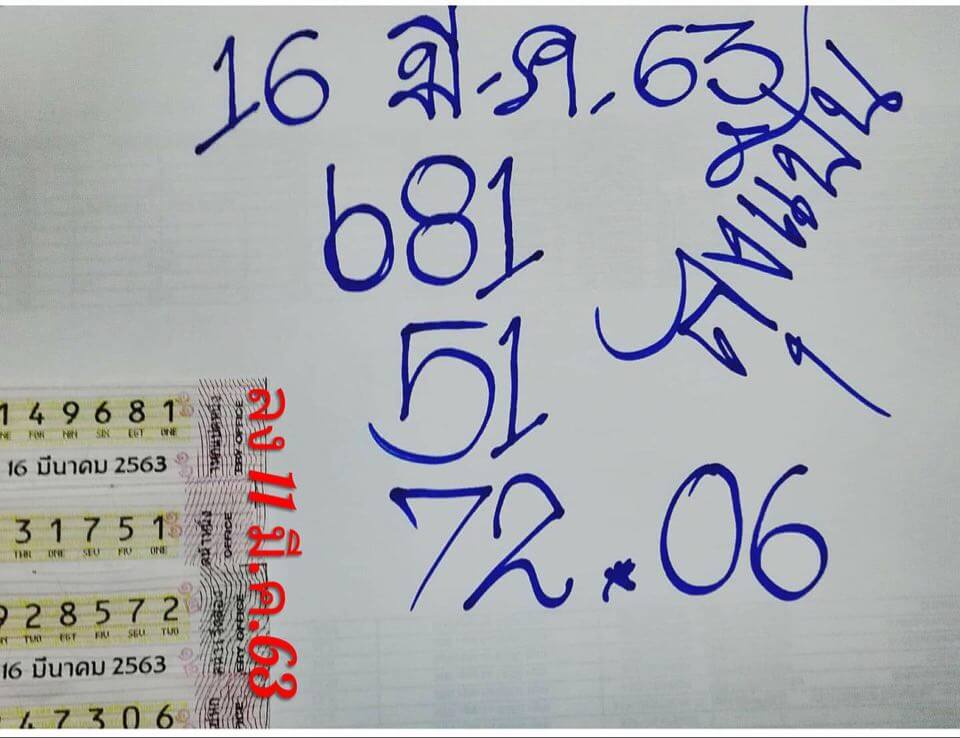 16 มี.ค.63
681
51
72*06
149681
NIN SIX EGT ONE
16 มีนาคม 2563
31751
THR ONE SEV FIV ONE
928572
TWO EGT FIV SEV TWO
16 มีนาคม 2563
47306
ลง 11 มี.ค.63